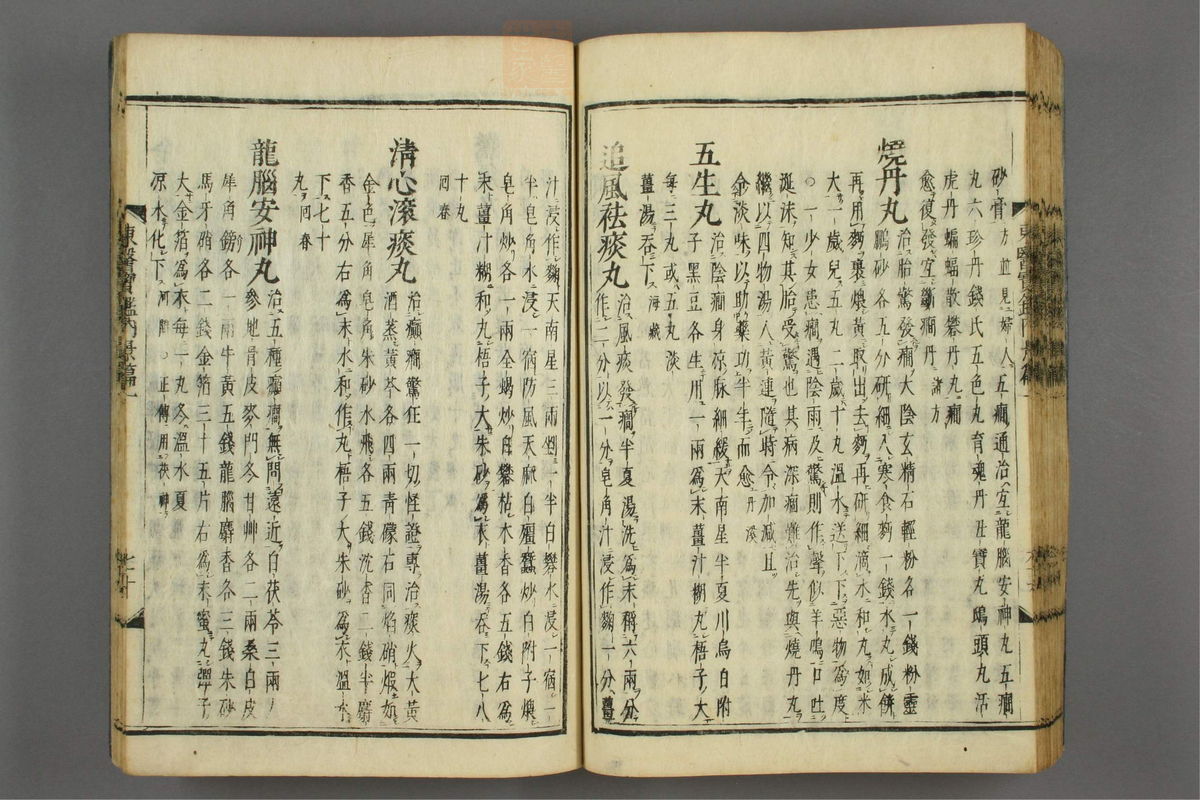 砂骨方並見婦人五癎通治宜龍腦安神丸五癎
丸六珍丹錢氏五色丸育魂丹丑寶丸鴟頭丸活
虎丹蝙蝠散礬丹丸癎
愈復發宜斷癎丹諸方
燒丹丸
治胎驚發癎大陰玄精石輕粉各一錢粉靈
鵬砂各五分研細入寒食麪一錢水丸成餠
再用麪裹煨黃取出去麪再研細滴水和丸如米
大一歲兒五丸二歲十丸溫水送下下惡物爲度
○一少女患癎遇陰雨及驚則作聲似羊鳴口吐
涎沫知其胎受驚也其病深痼難治先與燒丹丸
繼以四物湯入黃連隨時令加減且
令淡味以助藥功半年而愈丹溪
五生丸
治陰癎身凉脉細緩天南星半夏川烏白附
子黑豆各生用一兩爲末薑汁糊丸梧子大
每三丸或五丸淡
薑湯吞下海藏
追風祛痰丸
治風痰發癎半夏湯洗爲末稱六兩分
作二分以一分皂角汁浸作麴一分薑
汁浸作麴天南星三兩剉一半白礬水浸一宿一
半皂角水浸一宿防風天麻白殭蠶炒白附子煨
皂角炒各一兩全蝎炒白礬枯木香各五錢右爲
末薑汁糊和丸梧子大朱砂爲衣薑湯吞下七八
十丸
回春
淸心滾痰丸
治癲癎驚狂一切怪證專治痰火大黃
酒蒸黃芩各四兩靑礞石同焰硝煅如
金色犀角皂角朱砂水飛各五錢沈香二錢半麝
香五分右爲末水和作丸梧子大朱砂爲衣溫水
下七十
丸回春
龍腦安神丸
治五種癲癎無問遠近白茯苓三兩人
參地骨皮麥門冬甘艸各二兩桑白皮
犀角鎊各一兩牛黃五錢龍腦麝香各三錢朱砂
馬牙硝各二錢金箔三十五片右爲末蜜丸彈子
大金箔爲衣每一丸冬溫水夏
凉水化下河間○正傳用茯神
東醫寶鑑內景篇一
七十